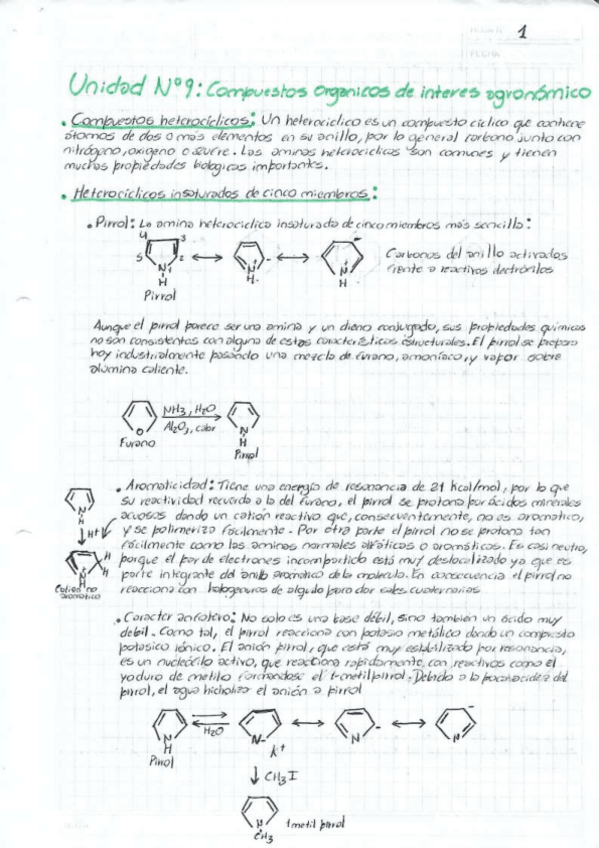 1
FECHA
Unidad Nº9: Compuestos organicos de interes agronómico
• Compuestos heterocíclicos: Un heterociclico es un compuesto cíclico que contiene
átomos de dos o más elementos en su anillo, por lo general carbono junto con
nitrógeno, oxigeno o azufre. Las aminas heterociclicas son comunes y tienen
muchas propiedades biologicas importantes.
• Heterocíclicos insaturados de cinco miembros:
• Pirrol: La amina heterociclica insaturada de cinco miembros más sencilla:
4 3
5 2
N1
H
Pirrol
N
H
N
H
Carbonos del anillo activados
frente a reactivos electrófilos
Aunque el pirrol parece ser una amina y un dieno conjugado, sus propiedades químicas
no son consistentes con alguna de estas características estructurales. El pirrol se prepara
hoy industrialmente pasando una mezcla de furano, amoníaco, y vapor sobre
alumina caliente.
O
Furano
NH3, H2O
Al2O3, calor
N
H
Pirrol
• Aromaticidad: Tiene una energía de resonancia de 21 Kcal/mol, por lo que
su reactividad recuerda a la del furano, el pirrol se protona por ácidos minerales
acuosos dando un catión reactivo que, consecuentemente, no es aromatico,
y se polimeriza fácilmente. Por otra parte el pirrol no se protona tan
fácilmente como las aminas normales alifáticas o aromáticas. Es casi neutro,
porque el par de electrones incompartido está muy deslocalizado ya que es
parte integrante del anillo aromático de la molecula. En consecuencia el pirrol no
reacciona con halogenuros de alquilo para dar sales cuaternarias
N
H
H+
H
H
N
H
Catión no
aromático
• Caracter anfotero: No solo es una base débil, sino también un ácido muy
debil. Como tal, el pirrol reacciona con potasio metálico dando un compuesto
potasico iónico. El anión pirrol, que está muy estabilizado por resonancia,
es un nucleófilo activo, que reacciona rapidamente, con reactivos como el
yoduro de metilo formandose el 1-metilpirrol. Debido a la poca acidez del
pirrol, el agua hidroliza el anión a pirrol
N
H
Pirrol
H2O
N-
K+
N
N
CH3I
N
CH3
1 metil pirrol